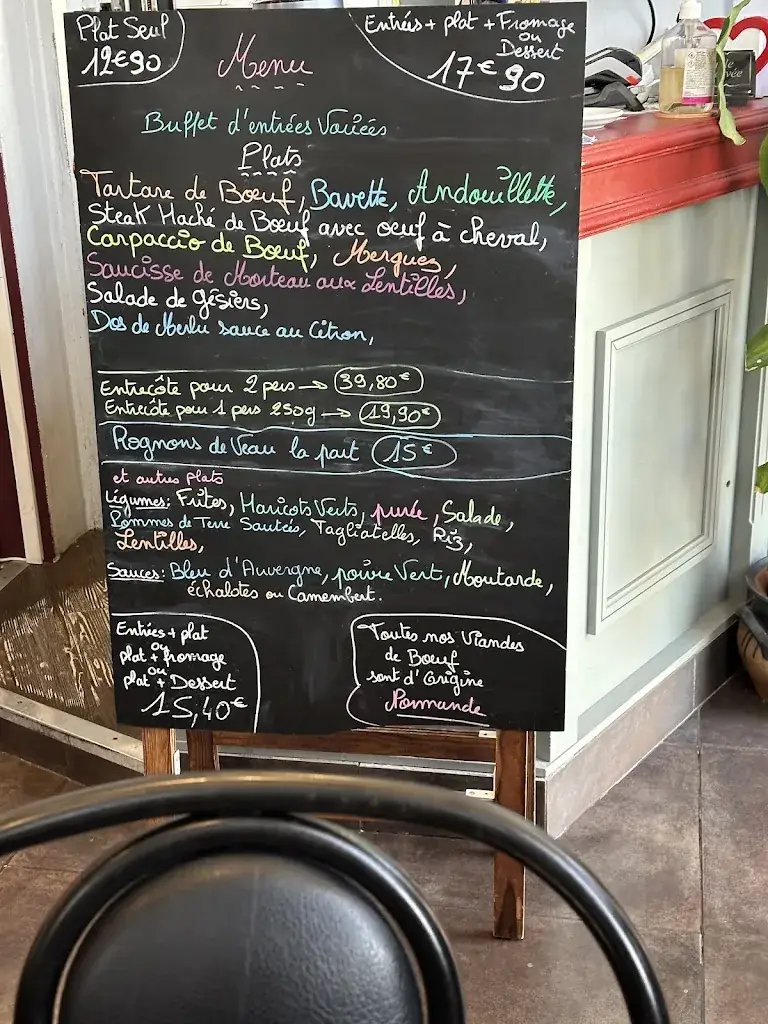 Plat Seul
12€90
Menu
Entrées + plat + Fromage
ou
Dessert
17€90
Buffet d'entrées Variées
Plats
Tartare de Boeuf, Bavette, Andouillette,
Steak Haché de Boeuf avec oeuf à cheval,
Carpaccio de Boeuf, Merguez,
Saucisse de Morteau aux Lentilles,
Salade de Gésiers,
Dos de Merlu sauce au Citron,
Entrecôte pour 2 pers → 39,80€
Entrecôte pour 1 pers 250g → 19,90€
Rognons de Veau la part 15€
et autres plats
Légumes: Frites, Haricots Verts, purée, Salade,
Pommes de Terre Sautées, Tagliatelles, Riz,
Lentilles,
Sauces: Bleu d'Auvergne, poivre Vert, Moutarde,
échalotes ou Camembert.
Entrées + plat
ou
plat + fromage
ou
plat + Dessert
15,40€
Toutes nos Viandes
de Boeuf
sont d'Origine
Normande